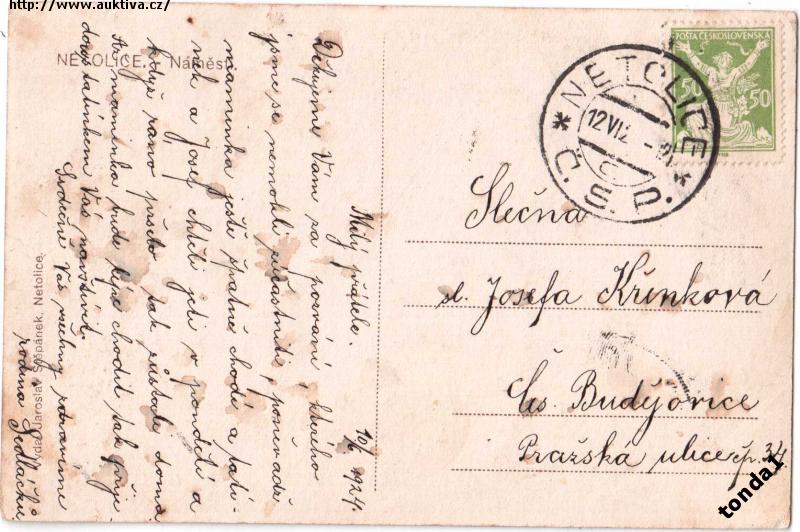 http://www.auktiva.cz/
NETOLICE. Náměstí
Vyd. Jaroslav Štěpánek, Netolice.
10/6 1924.
Milý přátelé.
Děkujeme Vám za pozvání, kterého
jsme se nemohli zúčastniti, poněvadž
maminka ještě špatně chodí a tatí-
nek a Josef chtěli jeti v pondělí a
když ráno pršelo tak zůstali doma
Až maminka bude lépe chodit tak přije-
dou s tatínkem Vás navštívit.
Srdečně Vás všechny zdravíme
rodina Sedláčků
POŠTA ČESKOSLOVENSKÁ
50 50
NETOLICE
12 VI 2
C
* Č.S.P. *
Slečna
sl. Josefa Křínková
Čes. Budějovice
Pražská ulice čp. 34
tonda1